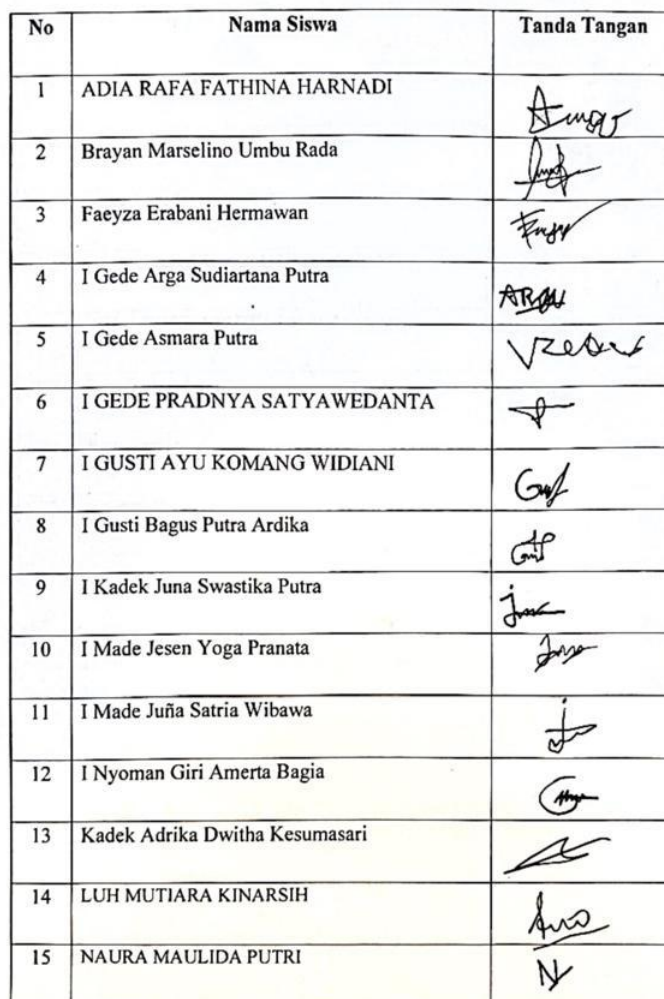 No Nama Siswa Tanda Tangan
1 ADIA RAFA FATHINA HARNADI
2 Brayan Marselino Umbu Rada
3 Faeyza Erabani Hermawan
4 I Gede Arga Sudiartana Putra
5 I Gede Asmara Putra
6 I GEDE PRADNYA SATYAWEDANTA
7 I GUSTI AYU KOMANG WIDIANI
8 I Gusti Bagus Putra Ardika
9 I Kadek Juna Swastika Putra
10 I Made Jesen Yoga Pranata
11 I Made Juña Satria Wibawa
12 I Nyoman Giri Amerta Bagia
13 Kadek Adrika Dwitha Kesumasari
14 LUH MUTIARA KINARSIH
15 NAURA MAULIDA PUTRI